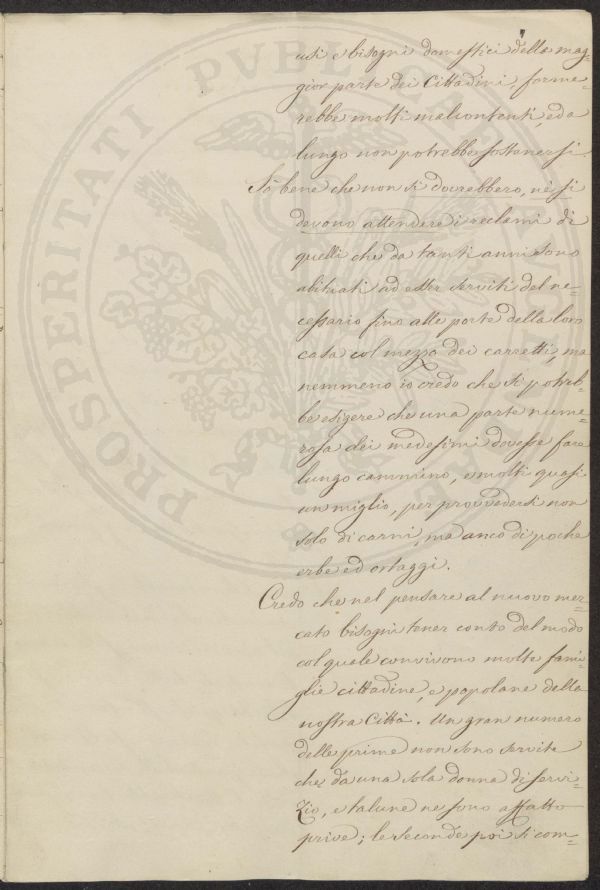 usi e bisogni domestici della mag=
gior parte dei Cittadini, forme=
rebbe molti malcontenti, ed a
lungo non potrebbe sostenersi.
So bene che non si dovrebbero, nè si
devono attendere i reclami di
quelli che da tanti anni sono
abituati ad esser serviti del ne=
cessario fino alle porte della loro
casa col mezzo dei carretti, ma
nemmeno io credo che si potreb=
be esigere che una parte nume=
rosa dei medesimi dovesse fare
lungo cammino, e molti quasi
un miglio, per provvedersi non
solo di carni, ma anco di poche
erbe ed ortaggi.
Credo che nel pensare al nuovo mer=
cato bisogni tener conto del modo
col quale convivono molte fami=
glie cittadine, e popolane della
nostra Città. Un gran numero
delle prime non sono servite
che da una sola donna di servi=
zio, e talune ne sono affatto
prive; le seconde poi si com=
PROSPERITATI PVBL